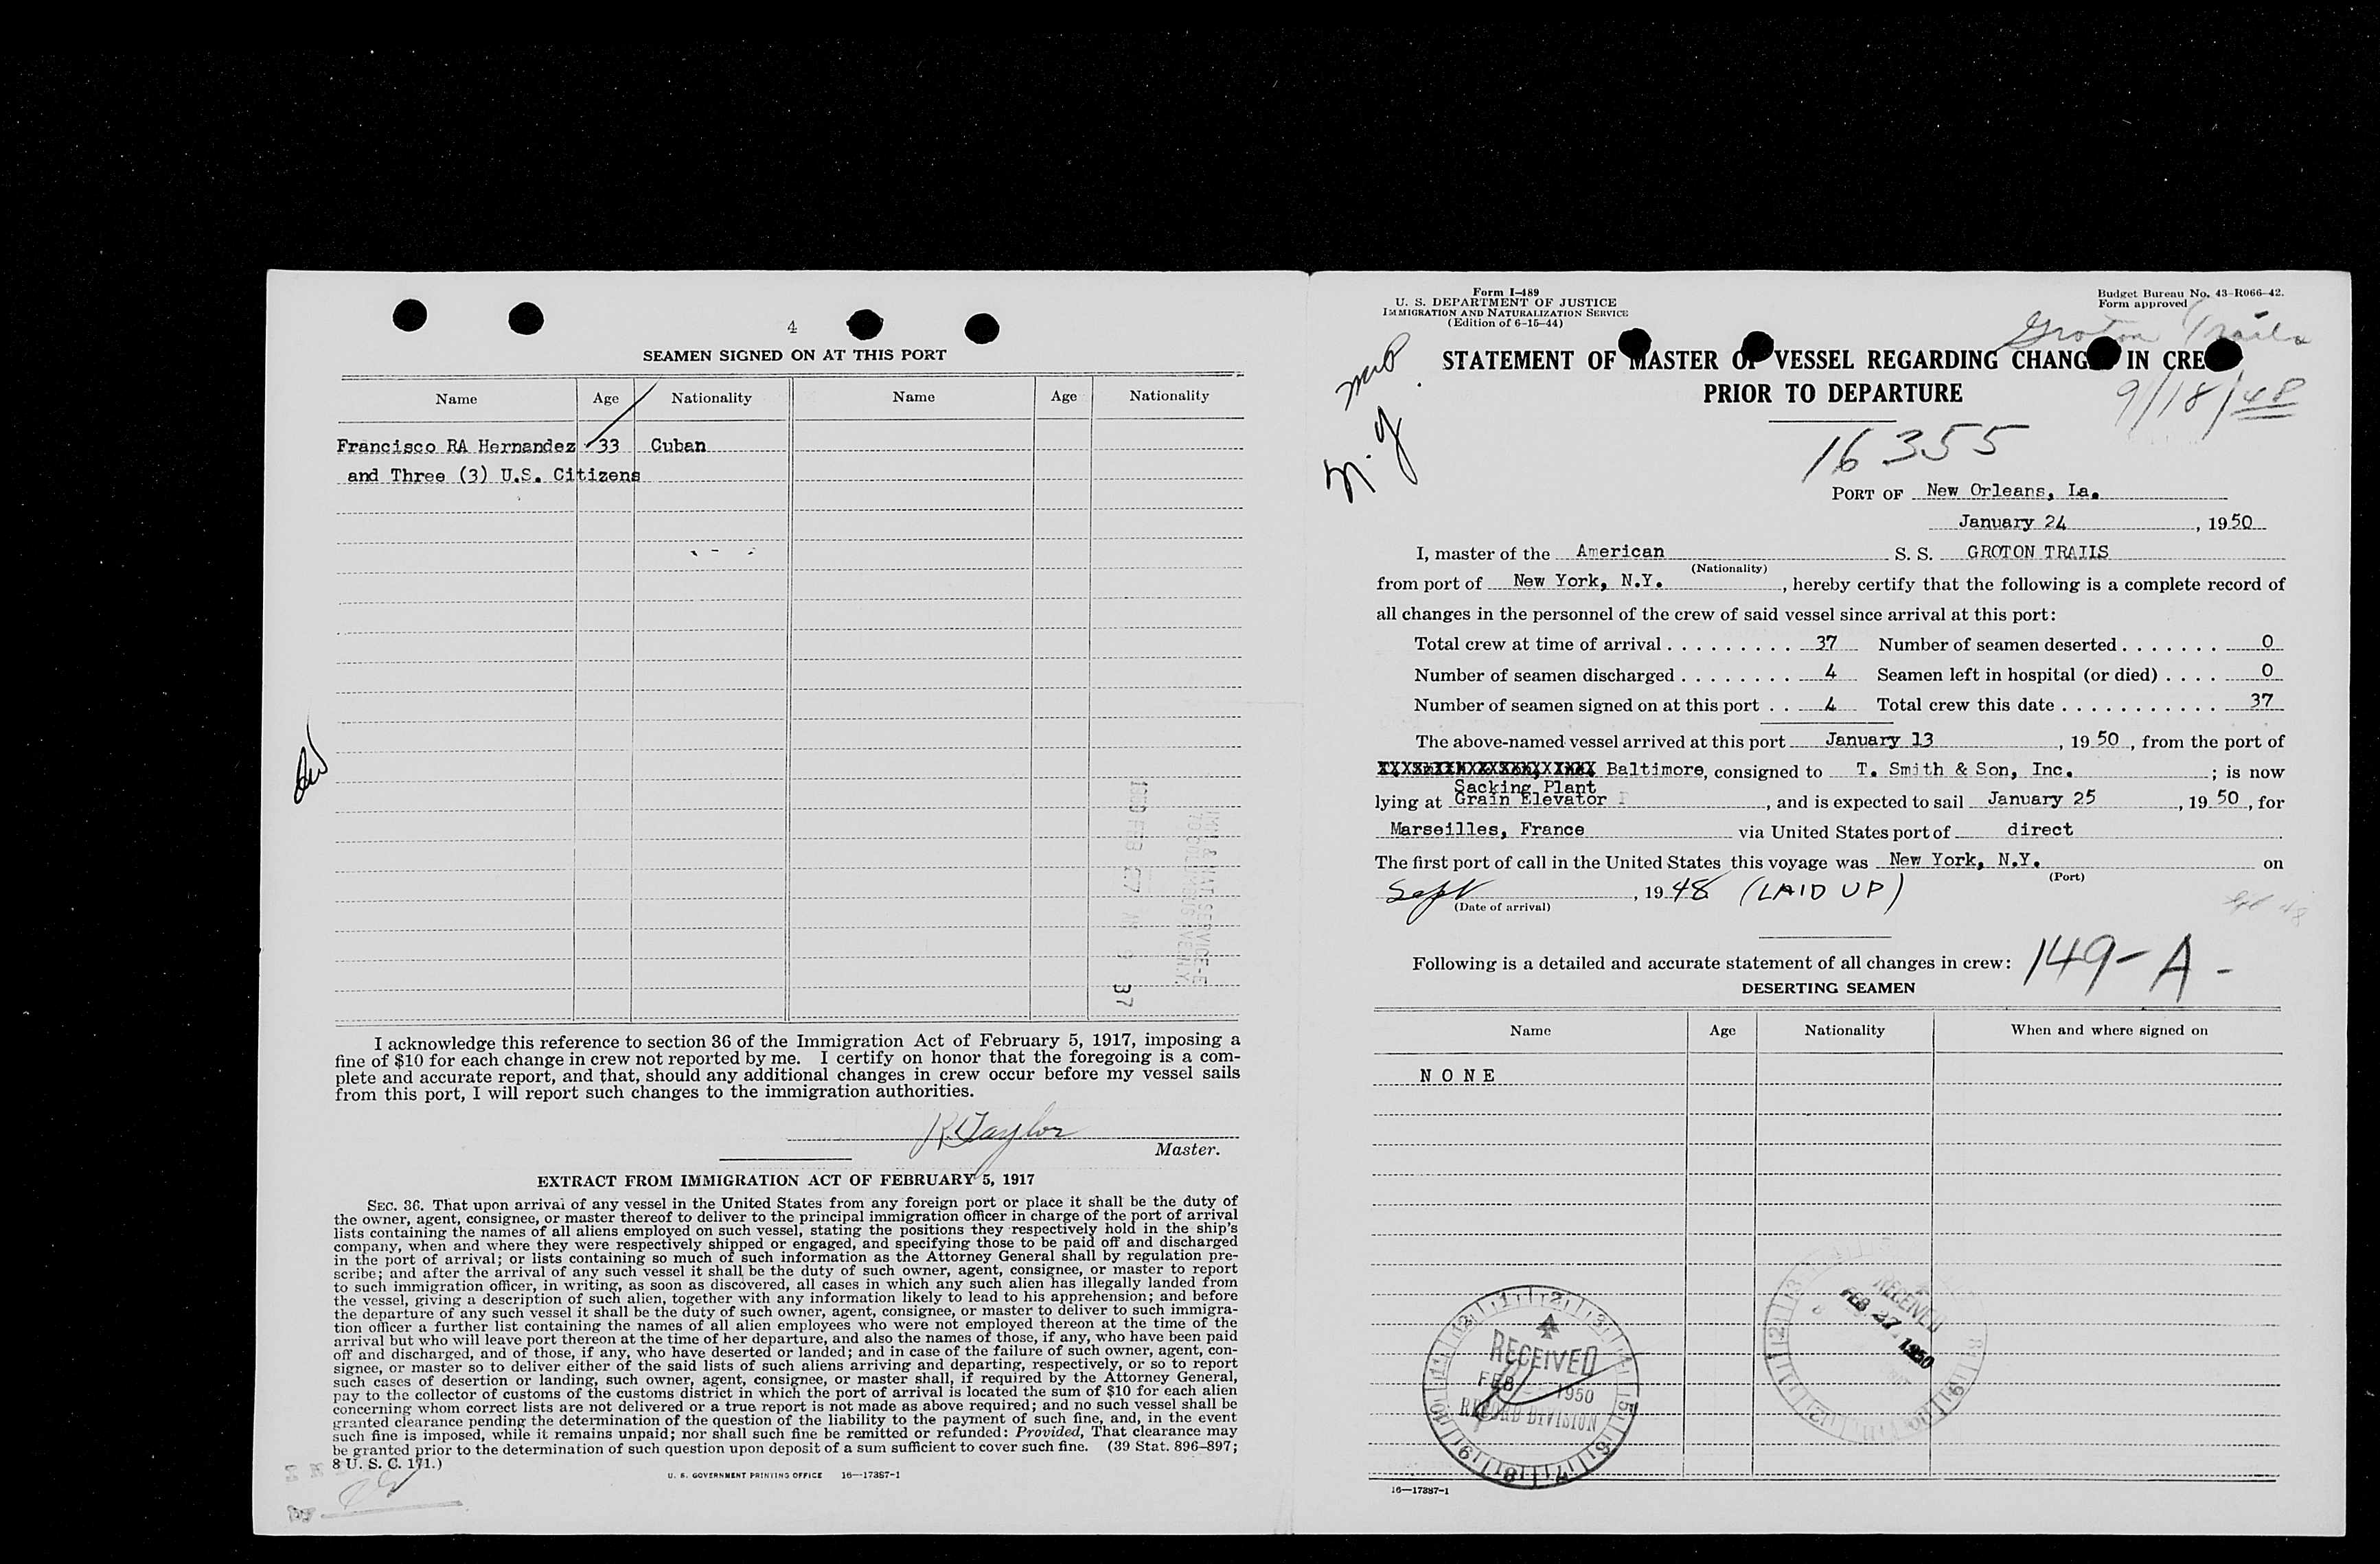 4
SEAMEN SIGNED ON AT THIS PORT
Name Age Nationality Name Age Nationality
Francisco RA Hernandez 33 Cuban
and Three (3) U.S. Citizens
I acknowledge this reference to section 36 of the Immigration Act of February 5, 1917, imposing a
fine of $10 for each change in crew not reported by me. I certify on honor that the foregoing is a com-
plete and accurate report, and that, should any additional changes in crew occur before my vessel sails
from this port, I will report such changes to the immigration authorities.
R Taylor
Master.
EXTRACT FROM IMMIGRATION ACT OF FEBRUARY 5, 1917
SEC. 36. That upon arrival of any vessel in the United States from any foreign port or place it shall be the duty of
the owner, agent, consignee, or master thereof to deliver to the principal immigration officer in charge of the port of arrival
lists containing the names of all aliens employed on such vessel, stating the positions they respectively hold in the ship's
company, when and where they were respectively shipped or engaged, and specifying those to be paid off and discharged
in the port of arrival; or lists containing so much of such information as the Attorney General shall by regulation pre-
scribe; and after the arrival of any such vessel it shall be the duty of such owner, agent, consignee, or master to report
to such immigration officer, in writing, as soon as discovered, all cases in which any such alien has illegally landed from
the vessel, giving a description of such alien, together with any information likely to lead to his apprehension; and before
the departure of any such vessel it shall be the duty of such owner, agent, consignee, or master to deliver to such immigra-
tion officer a further list containing the names of all alien employees who were not employed thereon at the time of the
arrival but who will leave port thereon at the time of her departure, and also the names of those, if any, who have been paid
off and discharged, and of those, if any, who have deserted or landed; and in case of the failure of such owner, agent, con-
signee, or master so to deliver either of the said lists of such aliens arriving and departing, respectively, or so to report
such cases of desertion or landing, such owner, agent, consignee, or master shall, if required by the Attorney General,
pay to the collector of customs of the customs district in which the port of arrival is located the sum of $10 for each alien
concerning whom correct lists are not delivered or a true report is not made as above required; and no such vessel shall be
granted clearance pending the determination of the question of the liability to the payment of such fine, and, in the event
such fine is imposed, while it remains unpaid; nor shall such fine be remitted or refunded: Provided, That clearance may
be granted prior to the determination of such question upon deposit of a sum sufficient to cover such fine. (39 Stat. 896-897;
8 U. S. C. 171.)
U. S. GOVERNMENT PRINTING OFFICE 16—17387-1
Form I-489
U. S. DEPARTMENT OF JUSTICE
IMMIGRATION AND NATURALIZATION SERVICE
(Edition of 6-15-44)
Budget Bureau No. 43-R066-42.
Form approved
Groton Trails
STATEMENT OF MASTER OF VESSEL REGARDING CHANG IN CRE
PRIOR TO DEPARTURE
9/18/48
16355
N.Y.
PORT OF New Orleans, La.
January 24, 1950
I, master of the American S. S. GROTON TRAILS
(Nationality)
from port of New York, N.Y., hereby certify that the following is a complete record of
all changes in the personnel of the crew of said vessel since arrival at this port:
Total crew at time of arrival . . . . . . . . . 37 Number of seamen deserted . . . . . . . 0
Number of seamen discharged . . . . . . . . 4 Seamen left in hospital (or died) . . . . 0
Number of seamen signed on at this port . . 4 Total crew this date . . . . . . . . . . . 37
The above-named vessel arrived at this port January 13, 1950, from the port of
Baltimore, consigned to T. Smith & Son, Inc.; is now
Sacking Plant
lying at Grain Elevator, and is expected to sail January 25, 1950, for
Marseilles, France via United States port of direct
The first port of call in the United States this voyage was New York, N.Y. on
(Port)
Sept, 1948 (LAID UP)
(Date of arrival)
Following is a detailed and accurate statement of all changes in crew: 149-A-
DESERTING SEAMEN
Name Age Nationality When and where signed on
NONE
RECEIVED
FEB 1950
RECORD DIVISION
RECEIVED
FEB 27 1950
16—17387-1